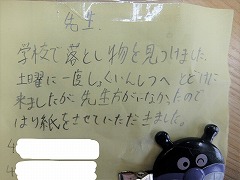 先生、
学校で落とし物を見つけました。
土曜に一度しょくいんしつへ とどけに
来ましたが、先生方がいなかったので
はり紙をさせていただきました。